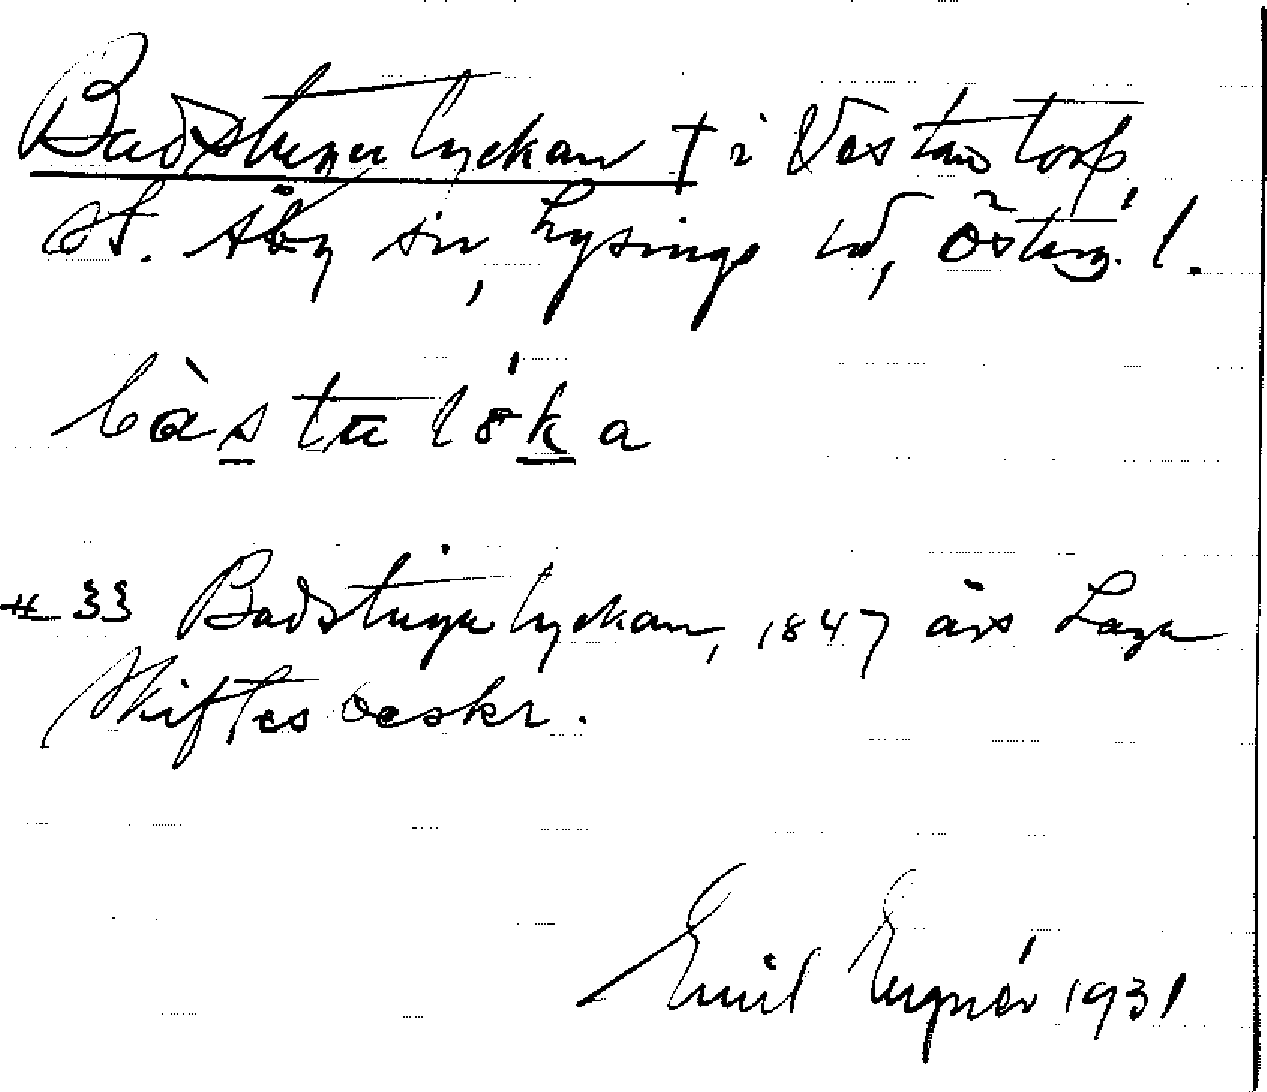 Badstugulyckan † i Västantorp,
St. Åby sn, Lysings hd, Östерg. l.
bàstulö́ka
# 33 Badstugulyckan, 1847 års Laga
Skiftesbeskr.
Emil 1931